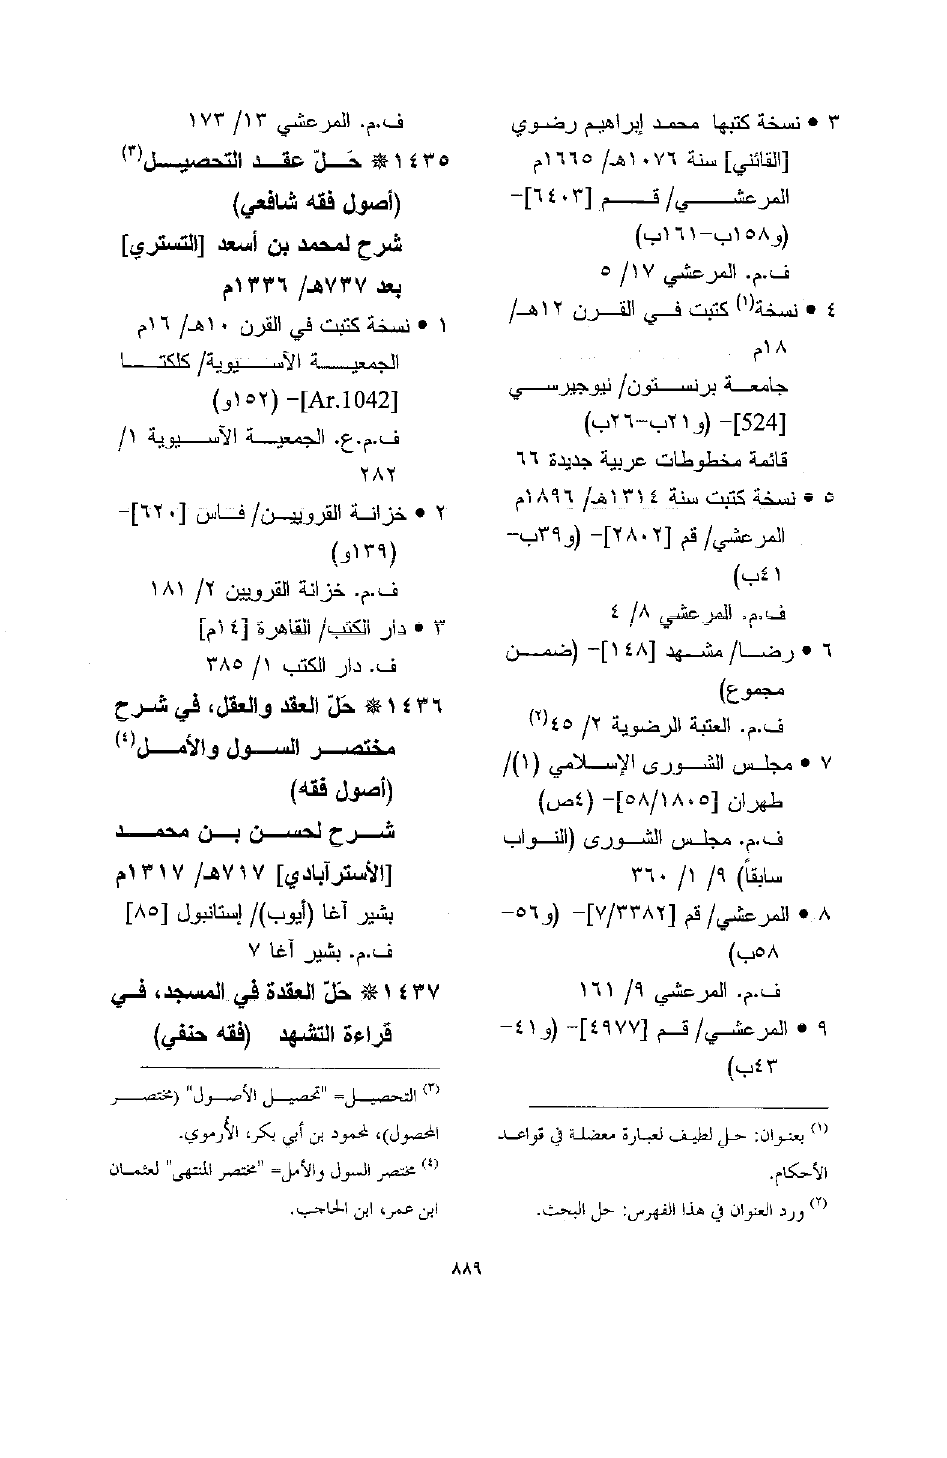 ٣ • نسخة كتبها محمد إبراهيم رضوي
[القائني] سنة ١٠٧٦هـ/ ١٦٦٥م
المرعشي/ قم [٦٤٠٣]-
(و١٥٨ب-١٦١ب)
ف.م. المرعشي ١٧/ ٥
٤ • نسخة(١) كتبت في القرن ١٢هـ/
١٨م
جامعة برنستون/ نيوجيرسي
[524]- (و٢١ب-٢٦ب)
قائمة مخطوطات عربية جديدة ٦٦
٥ • نسخة كتبت سنة ١٣١٤هـ/ ١٨٩٦م
المرعشي/ قم [٢٨٠٢]- (و٣٩ب-
٤١ب)
ف.م. المرعشي ٨/ ٤
٦ • رضا/ مشهد [١٤٨]- (ضمن
مجموع)
ف.م. العتبة الرضوية ٢/ ٤٥(٢)
٧ • مجلس الشورى الإسلامي (١)/
طهران [٥٨/١٨٠٥]- (٤ص)
ف.م. مجلس الشورى (النواب
سابقاً) ٩/ ١/ ٣٦٠
٨ • المرعشي/ قم [٧/٣٣٨٢]- (و٥٦-
٥٨ب)
ف.م. المرعشي ٩/ ١٦١
٩ • المرعشي/ قم [٤٩٧٧]- (و٤١-
٤٣ب)
(١) بعنوان: حل لطيف لعبارة معضلة في قواعد
الأحكام.
(٢) ورد العنوان في هذا الفهرس: حل البحث.
ف.م. المرعشي ١٣/ ١٧٣
١٤٣٥* حَلّ عقد التحصيل(٣)
(أصول فقه شافعي)
شرح لمحمد بن أسعد [التستري]
بعد ٧٣٧هـ/ ١٣٣٦م
١ • نسخة كتبت في القرن ١٠هـ/ ١٦م
الجمعية الآسيوية/ كلكتا
[Ar.1042]- (١٥٢و)
ف.م.ع. الجمعية الآسيوية ١/
٢٨٢
٢ • خزانة القرويين/ فاس [٦٢٠]-
(١٣٩و)
ف.م. خزانة القرويين ٢/ ١٨١
٣ • دار الكتب/ القاهرة [١٤م]
ف. دار الكتب ١/ ٣٨٥
١٤٣٦* حَلّ العقد والعقل، في شرح
مختصر السول والأمل(٤)
(أصول فقه)
شرح لحسن بن محمد
[الأسترآبادي] ٧١٧هـ/ ١٣١٧م
بشير آغا (أيوب)/ إستانبول [٨٥]
ف.م. بشير آغا ٧
١٤٣٧* حَلّ العقدة في المسجد، في
قراءة التشهد (فقه حنفي)
(٣) التحصيل= "تحصيل الأصول" (مختصر
المحصول)، لمحمود بن أبي بكر، الأُرموي.
(٤) مختصر السول والأمل= "مختصر المنتهى" لعثمان
ابن عمر، ابن الحاجب.
٨٨٩